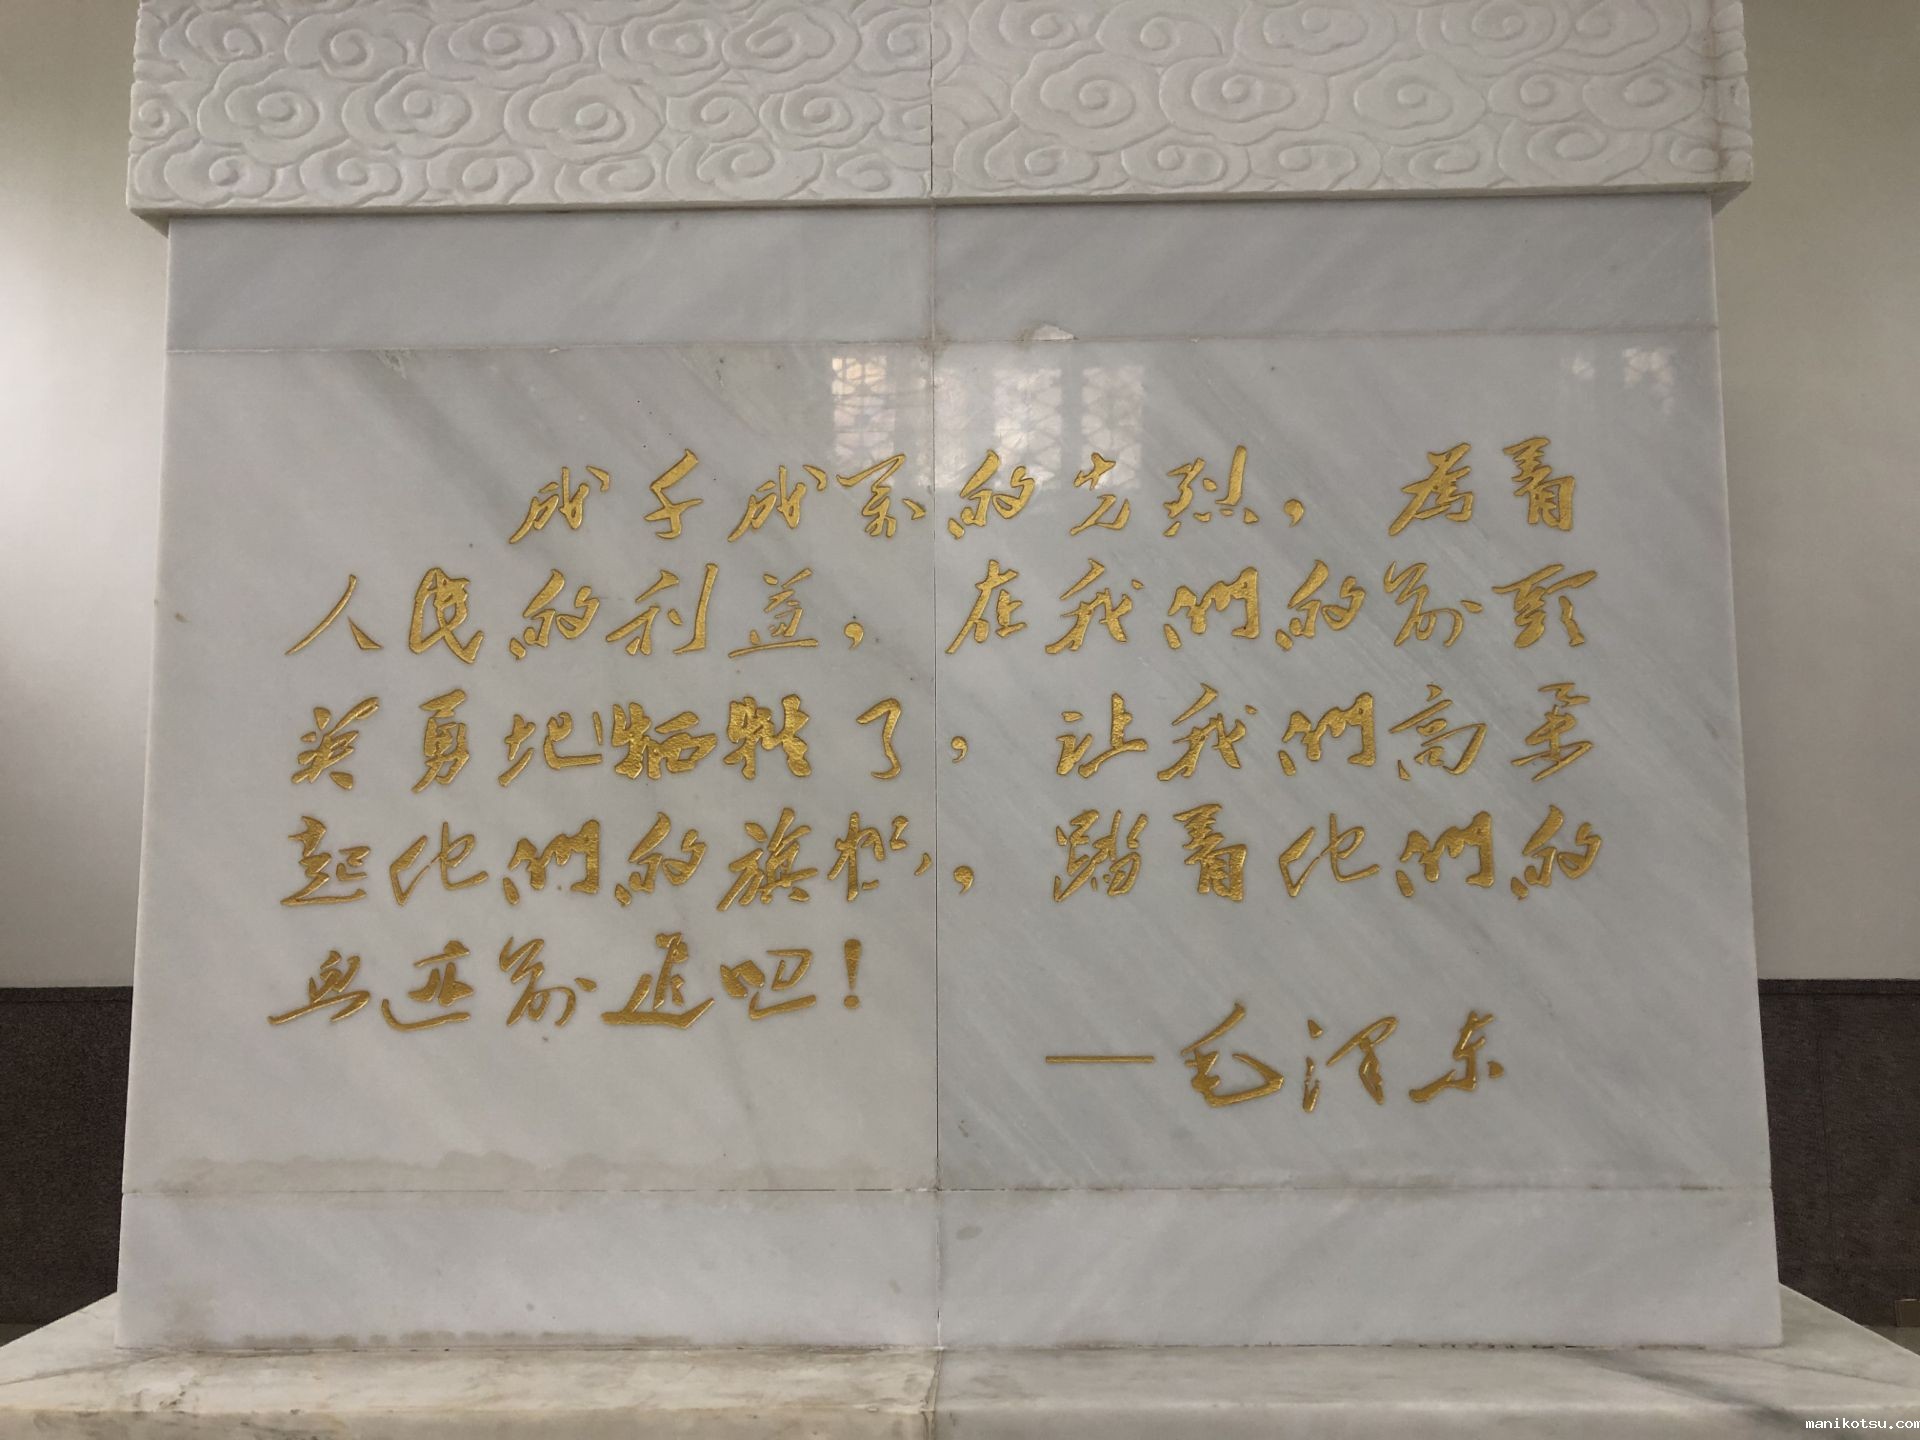 成千成萬的先烈，為着
人民的利益，在我們的前頭
英勇地牺牲了，让我們高举
起他們的旗帜，踏着他們的
血迹前進吧！
—毛泽东
manikotsu.com